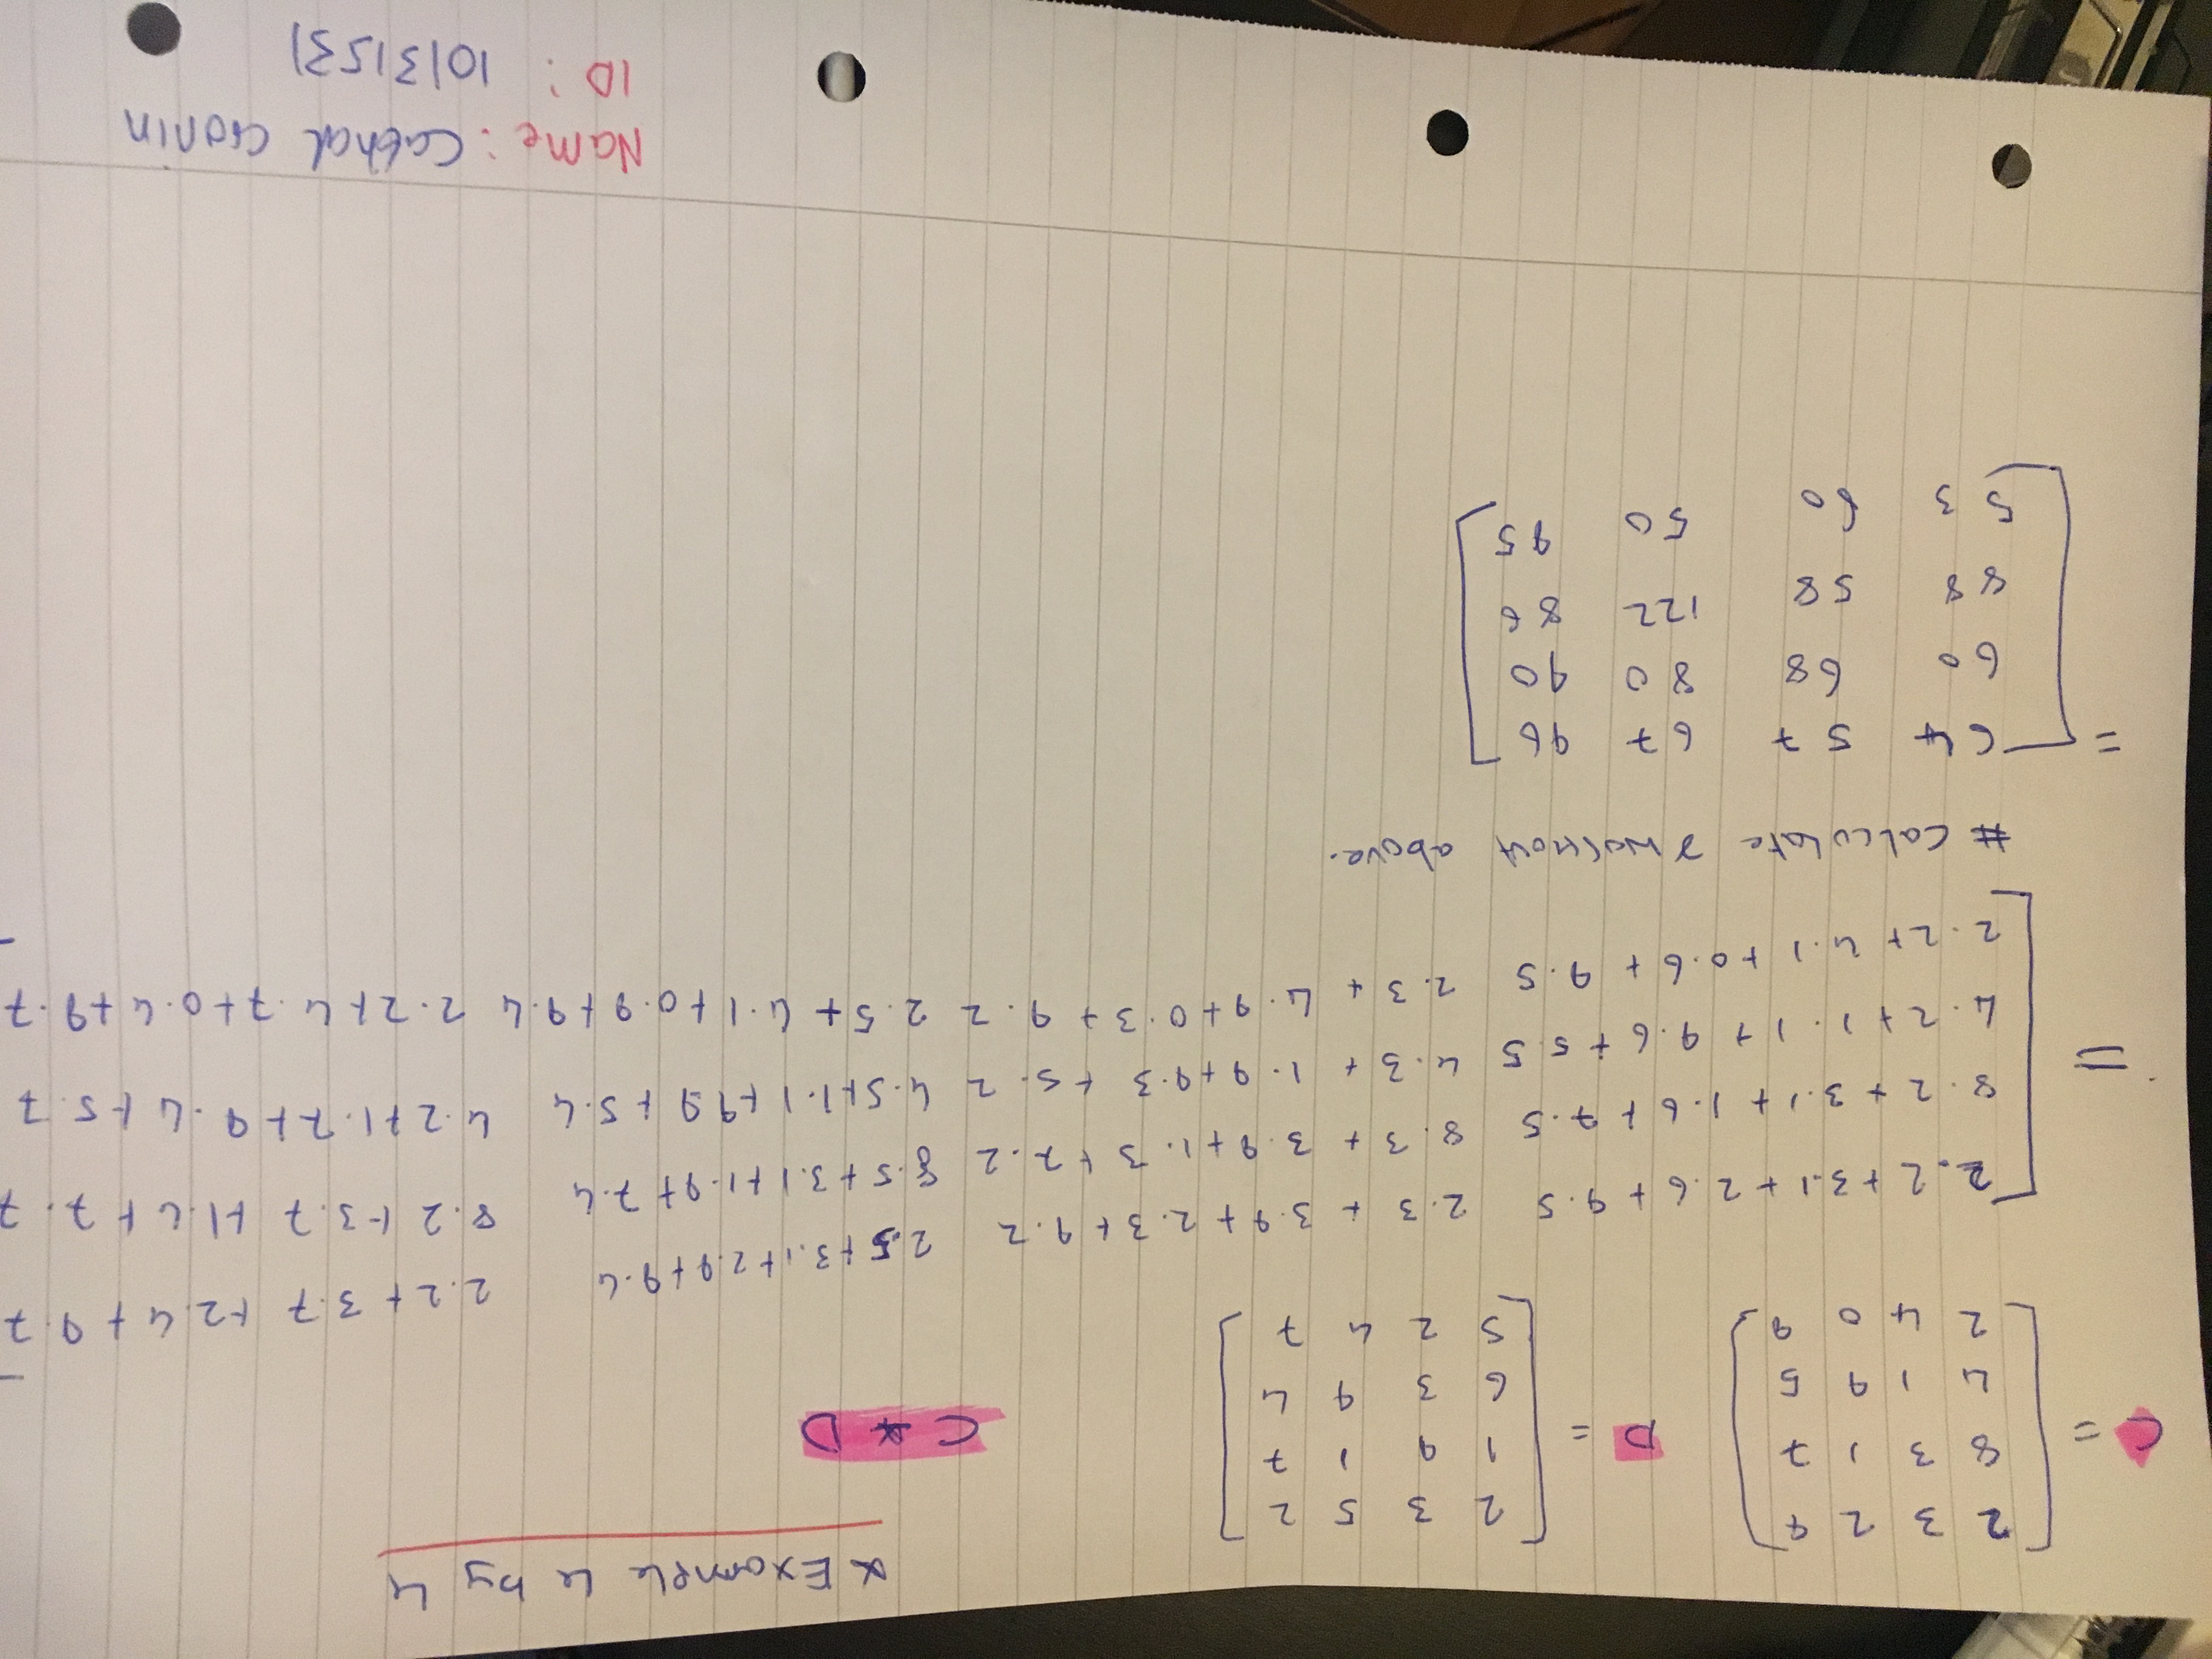 * Example 4 by 4
C * D
C = [ 2 3 2 9 D = [ 2 3 5 2 ]
8 3 1 7 1 9 1 7
4 1 9 5 6 3 9 4
2 4 0 9 ] 5 2 4 7
= [ 2.2 + 3.1 + 2.6 + 9.5 2.3 + 3.9 + 2.3 + 9.2 2.5 + 3.1 + 2.9 + 9.4 2.2 + 3.7 + 2.4 + 9.7
8.2 + 3.1 + 1.6 + 7.5 8.3 + 3.9 + 1.3 + 7.2 8.5 + 3.1 + 1.9 + 7.4 8.2 + 3.7 + 1.4 + 7.7
4.2 + 1.1 + 9.6 + 5.5 4.3 + 1.9 + 9.3 + 5.2 4.5 + 1.1 + 9.9 + 5.4 4.2 + 1.7 + 9.4 + 5.7
2.2 + 4.1 + 0.6 + 9.5 2.3 + 4.9 + 0.3 + 9.2 2.5 + 4.1 + 0.9 + 9.4 2.2 + 4.7 + 0.4 + 9.7
# Calculate & workout above.
= [ 64 57 67 96 ]
60 68 80 90
88 58 122 86
53 60 50 95
Name: Cathal Cronin
ID: 10131531